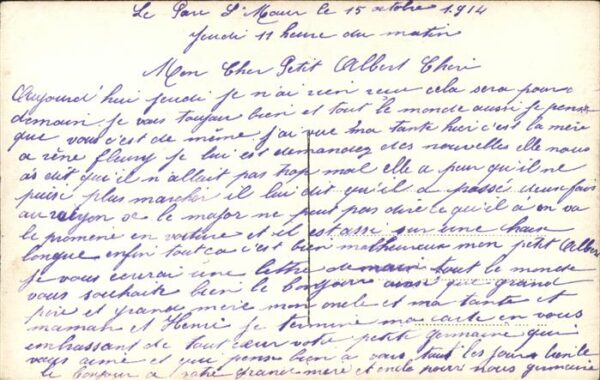 Le Parc St Maur le 15 octobre 1914
Jeudi 11 heure du matin
Mon Cher Petit Albert Cheri
Aujourd'hui jeudi je n'ai rien reçu cela sera pour
demain je vais toujour bien et tout le monde aussi je pense
que vous c'est de même j'ai vue ma tante hier c'est la mère
a réne fleury je lui est demandez des nouvelles elle nous
as dit qu'il n'allait pas trop mal elle a peur qu'il ne
puise plus marcher il lui dit qu'il a passé deux fois
au rayon x le major ne peut pas dire ce qu'il a on va
le promené en voiture et il est assi sur une chaise
longue enfin tout ca c'est bien malheureux mon petit Albert
je vous ecrirai une lettre demain tout le monde
vous souhaite bien le bonjour ainsi que grand
père et grande mère mon oncle et ma tante et
maman et Henri je termine ma carte en vous
embrassant de tout cœur votre petite germaine qui
vous aime et qui pense bien a vous tout les jours
le bonjour a votre grand mère et oncle pour nous germaine